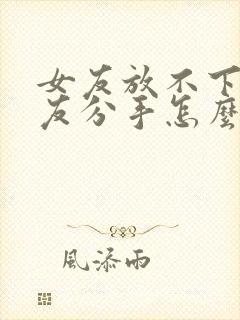 女友放不下
友分手怎麼
風添雨